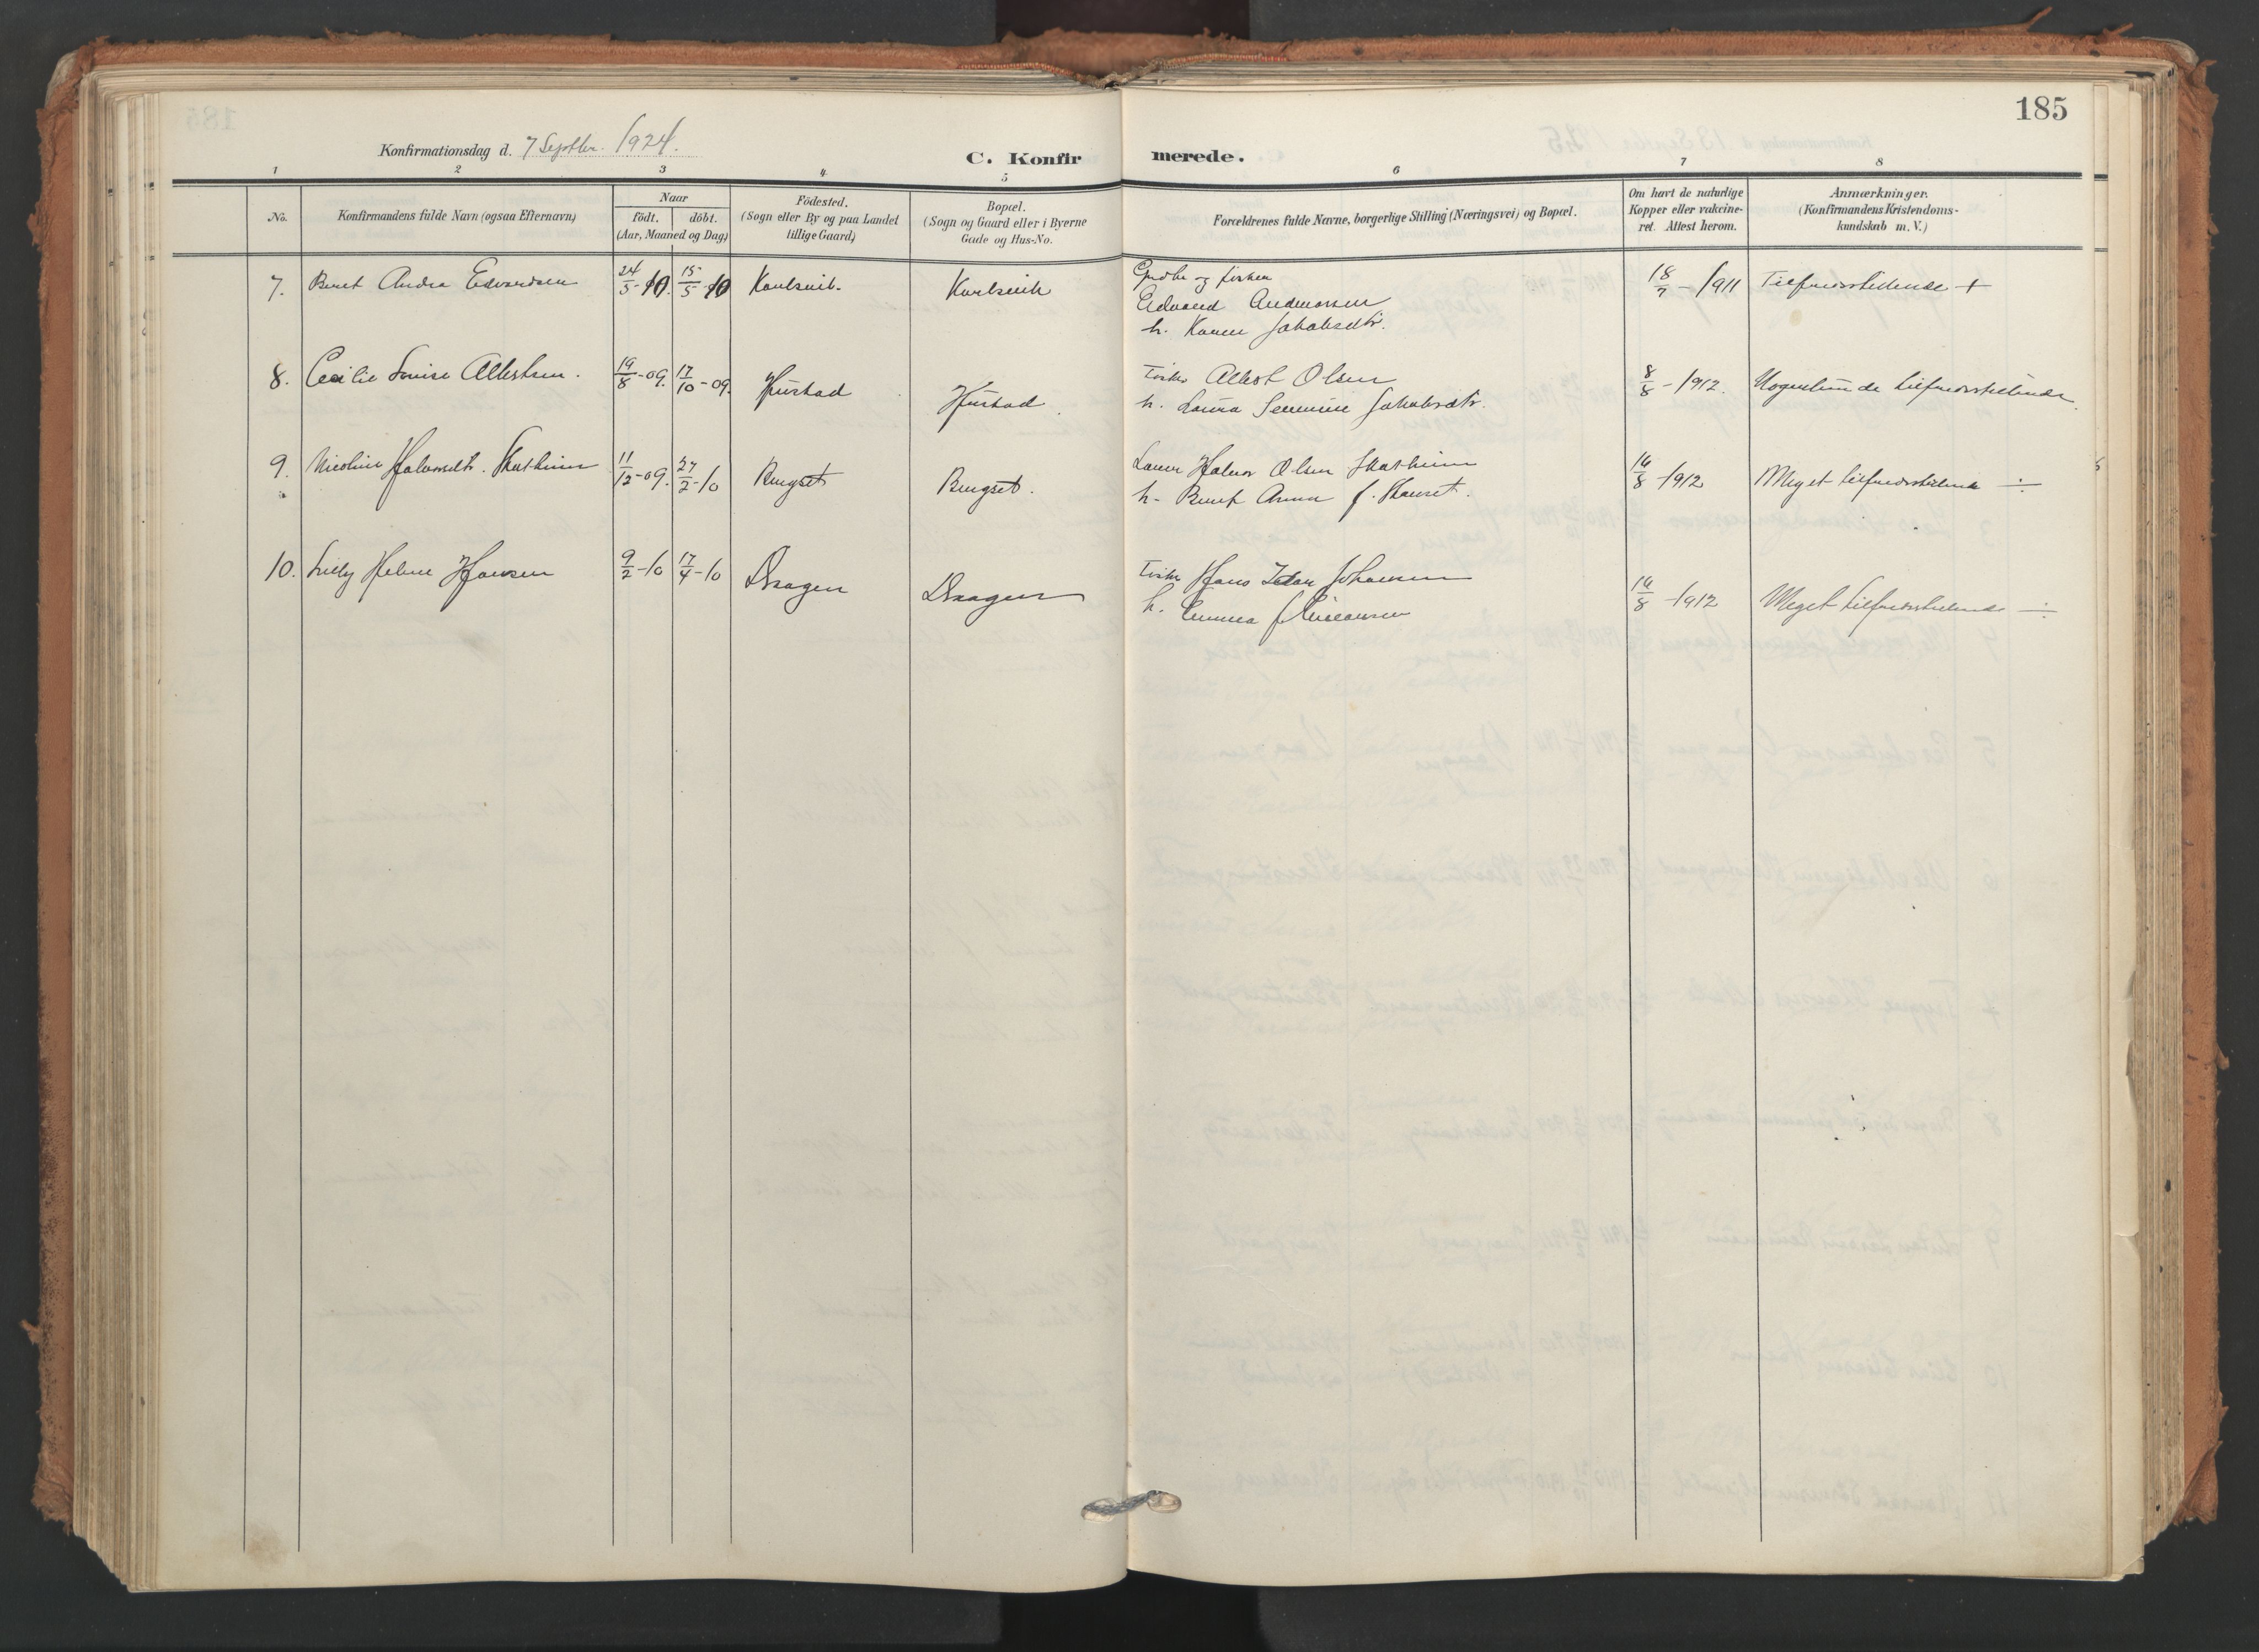 185
Konfirmationsdag d. 7 Septbr. 1924.
C. Konfirmerede.
1 2 3 4 5 6 7 8
No.
Konfirmandens fulde Navn (ogsaa Efternavn)
Naar
födt. döbt.
(Aar, Maaned og Dag)
Födested.
(Sogn eller By og paa Landet
tillige Gaard)
Bopæl.
(Sogn og Gaard eller i Byerne
Gade og Hus-No.
Forældrenes fulde Navne, borgerlige Stilling (Næringsvei) og Bopæl.
Om havt de naturlige
Kopper eller vakcine-
ret. Attest herom.
Anmærkninger.
(Konfirmandens Kristendoms-
kundskab m. V.)
7. Beret Andrea Edvardsen 24/5-10. 15/5-10 Karlsvik. Karlsvik Gmbr og fisker 18/7-1911 Tilfredsstillende +
Edvard Andreassen
h. Karen Jakobsdtr.
8. Cecilie Lovise Albertsen. 19/8-09. 17/10-09. Hustad Hustad. Fisker Albert Olsen 8/8-1912. Nogenlunde tilfredsstillende.
h. Laura Jakobsdtr.
9. Nicoline Halvorsdtr. Skatheim 11/12-09. 27/2-10 Bergset Bergset. Halvor Olsen Skatheim 16/8-1912 Meget tilfredsstillende ÷
h. Beret Anna f.
10. Lilly Helene Hansen 9/2-10 17/4-10 Draagen Draagen Fisker Hans Johansen 16/8-1912 Meget tilfredsstillende ÷
h. Emma f.